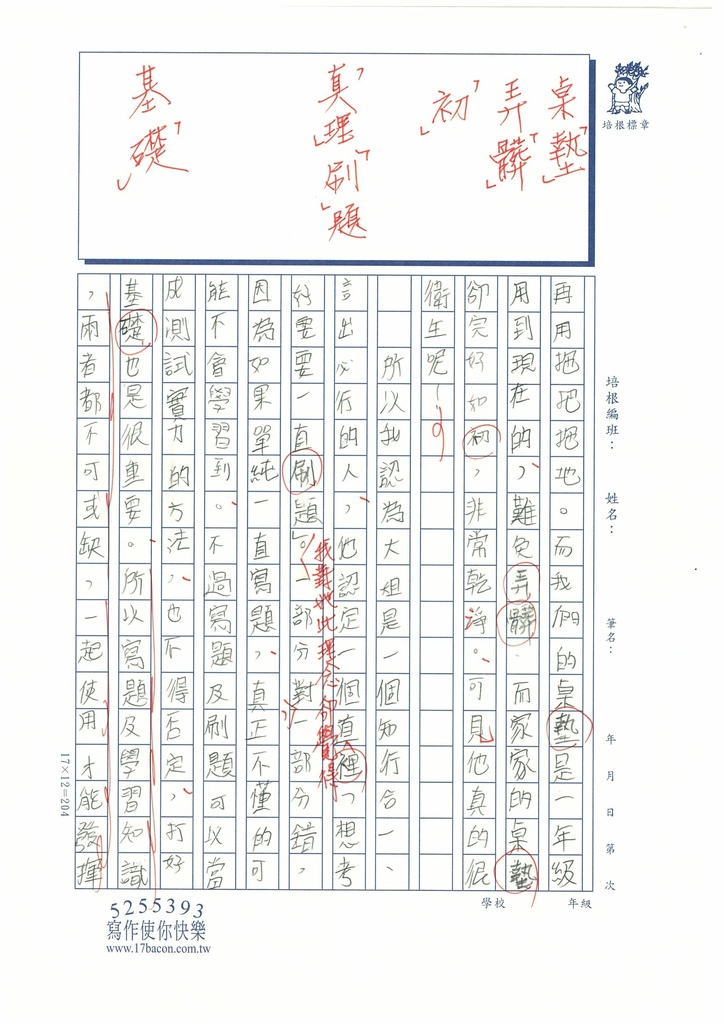 桌墊
弄髒
初
真理刷題
基礎
培根標章
培根編班：
姓名：
筆名：
年 月 日 第 次
再用抱把把地。而我們的桌墊是一年級
用到現在的，難免弄髒，而家家的桌墊
卻完好如初，非常乾淨。可見他真的很
衛生呢！
所以我認為大姐是一個知行合一、
言出必行的人，他認定一個真裡，「想考
好要要一直刷題」。一部分對一部分錯，
我對她此理念卻覺得
因為如果單純一直寫題，真正不僅的可
能不會學習到。不過寫題及刷題可以當
成測試實力的方法，也不得否定，打好
基礎也是很重要。所以寫題及學習知識
，兩者都不可或缺，一起使用才能發揮
17×12=204
學校
年級
5255393
寫作使你快樂
www.17bacon.com.tw